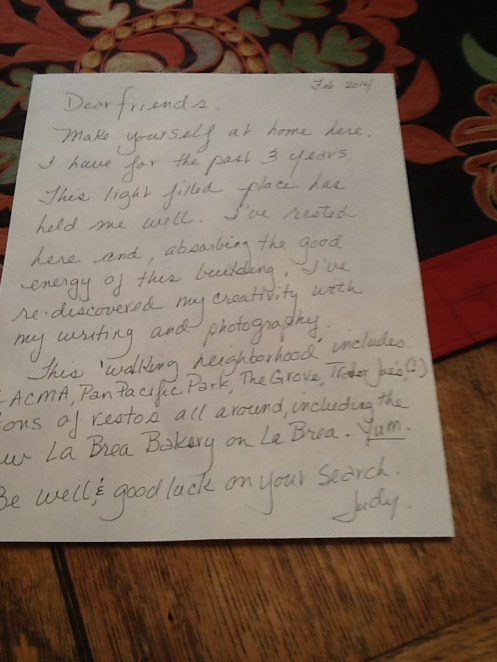 Feb 2014
Dear friends.
Make yourself at home here.
I have for the past 3 years.
This light filled place has
held me well. I've rested
here and, absorbing the good
energy of this building, I've
re-discovered my creativity with
my writing and photography.
This 'walking neighborhood' includes
-ACMA, Pan Pacific Park, The Grove, Trader Joe's (:)
ons of restos all around, including the
w La Brea Bakery on La Brea. Yum.
Be well, & good luck on your search.
Judy.